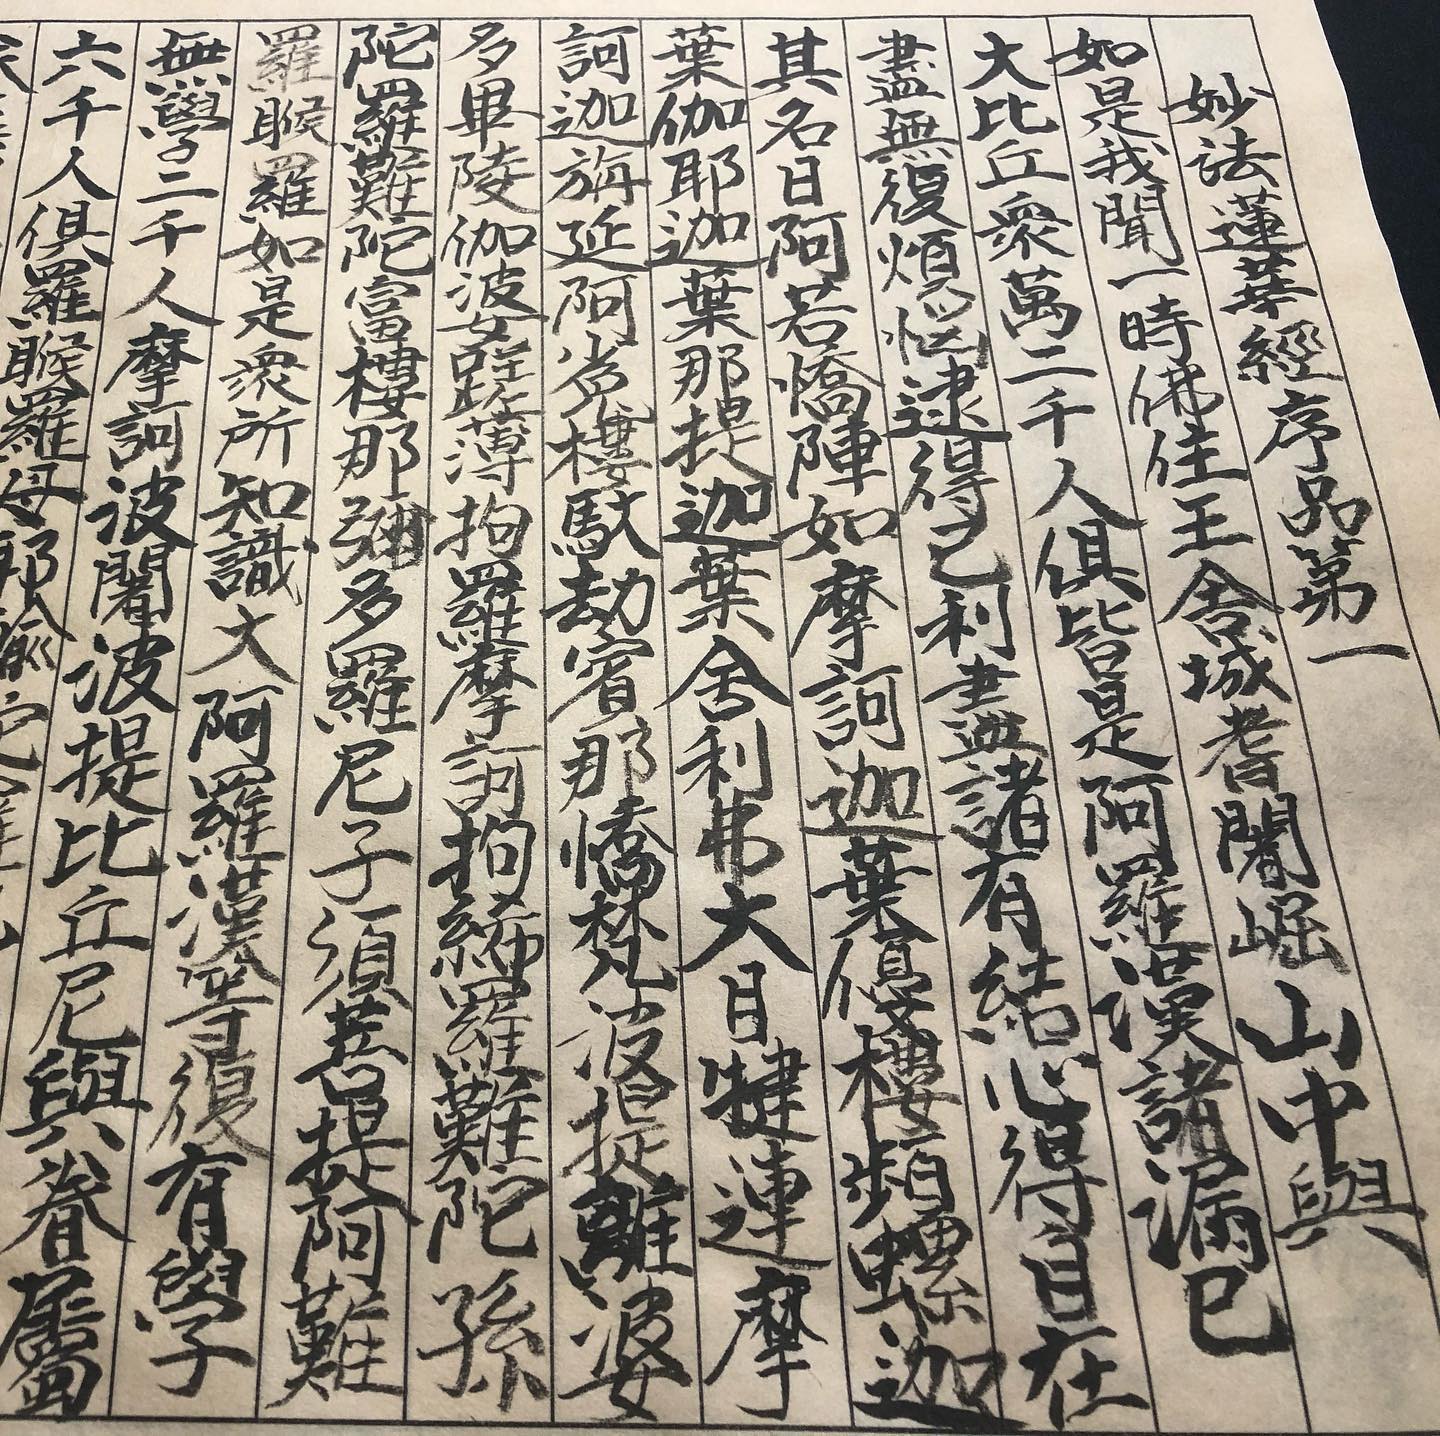 妙法蓮華經序品第一
如是我聞一時佛住王舍城耆闍崛山中與
大比丘衆萬二千人俱皆是阿羅漢諸漏已
盡無復煩惱逮得己利盡諸有結心得自在
其名日阿若憍陳如摩訶迦葉優樓頻螺迦
葉伽耶迦葉那提迦葉舍利弗大目犍連摩
訶迦旃延阿㝹樓馱劫賓那憍梵波提離婆
多畢陵伽婆蹉薄拘羅摩訶拘絺羅難陀孫
陀羅難陀富樓那彌多羅尼子須菩提阿難
羅睺羅如是衆所知識大阿羅漢等復有學
無學二千人摩訶波闍波提比丘尼與眷屬
六千人俱羅睺羅母耶輸陀羅